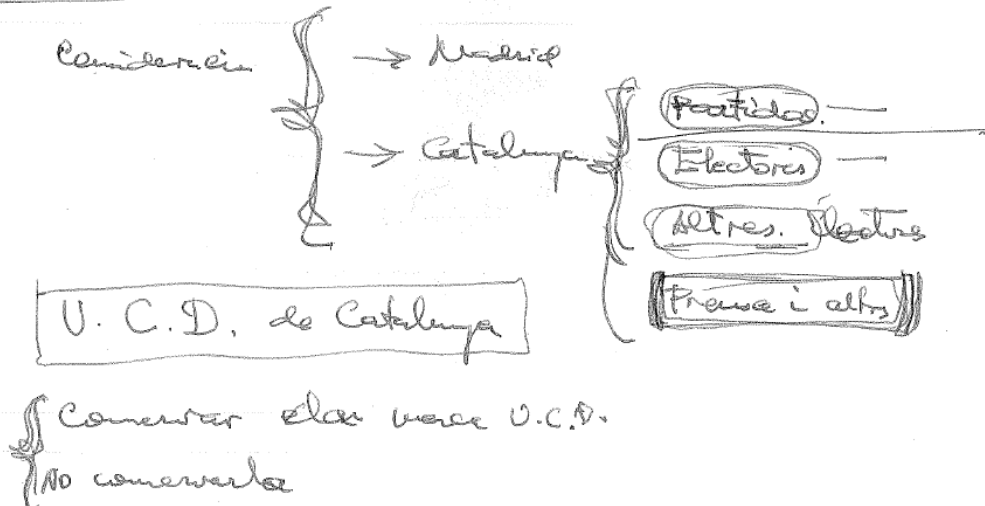 Consideración → Madrid
→ Catalunya
Partidos. —
Electores —
Altres. Electores
Prensa i altres
U. C. D. de Catalunya
Conservar U.C.D.
No conservarla